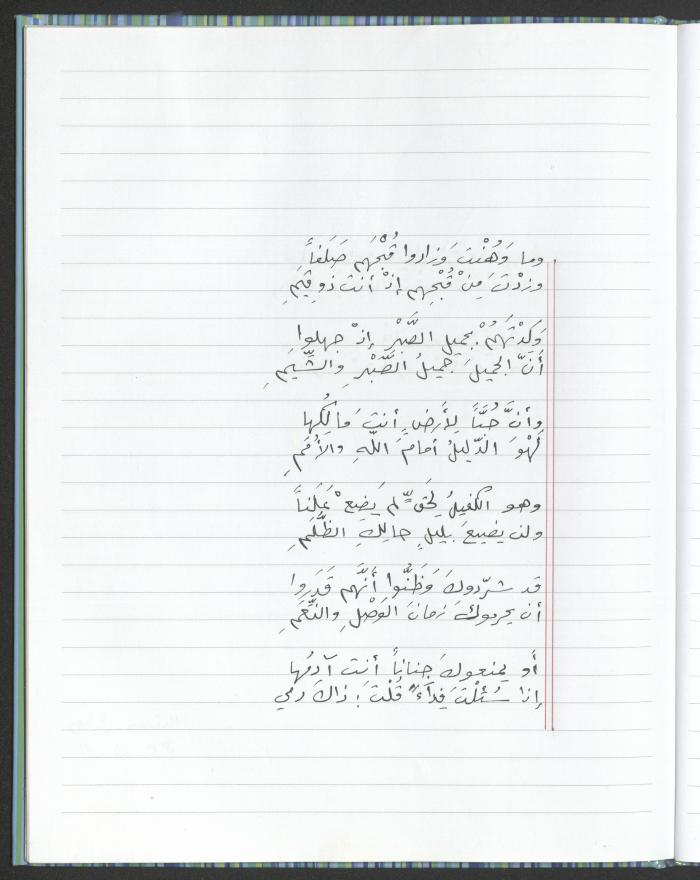 وما وَهُنْتَ وَزادوا قُبْحَهم صَلَفاً
وزِدْتَ مِنْ قُبْحِهم إذْ أنتَ ذو قِيَمِ
وَكِدْتَهُمْ بجميلِ الصَّبْرِ إذْ جهلوا
أنَّ الجميلَ جميلُ الصَّبْرِ والشِّيَمِ
وأنَّ حُبَّاً لِأَرضٍ أنتَ مَالِكُها
لَهْوَ الدّليلُ أمامَ اللّهِ والأُمَمِ
وهو الكفيلُ لِحَقٍّ لم يَضِعْ عَلَناً
ولن يضيعَ بليلٍ حالِكِ الظُّلَمِ
قد شرّدوكَ وَظَنُّوا أَنَّهم قَدَروا
أن يحرموكَ زمانَ الوَصْلِ والنِّعَمِ
أَو يمنعوكَ جِناناً أنت آدمُها
إذا سُئلْتَ فِدآءً قُلْتَ : ذاك دمي